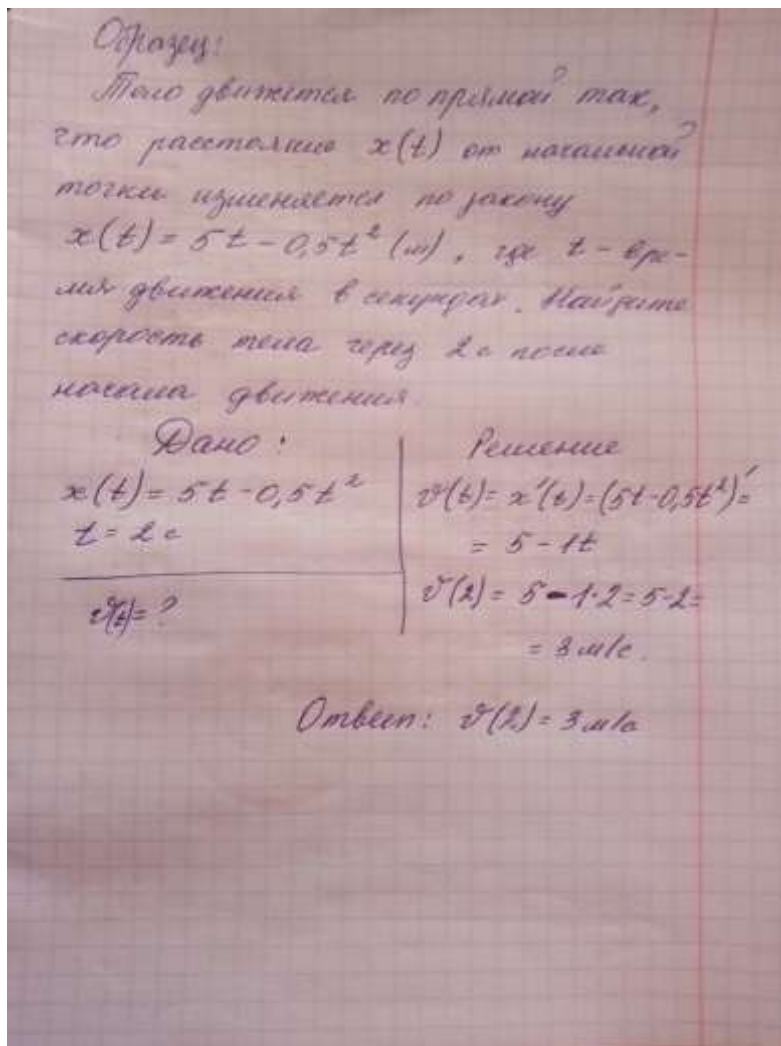 Образец:
Тело движется по прямой так,
что расстояние x(t) от начальной
точки изменяется по закону
x(t) = 5t - 0,5t² (м), где t - вре-
мя движения в секундах. Найдите
скорость тела через 2 с после
начала движения.
Дано:
x(t) = 5t - 0,5t²
t = 2 с
v(t) = ?
Решение
v(t) = x'(t) = (5t - 0,5t²)' =
= 5 - 1t
v(2) = 5 - 1·2 = 5 - 2 =
= 3 м/с.
Ответ: v(2) = 3 м/с